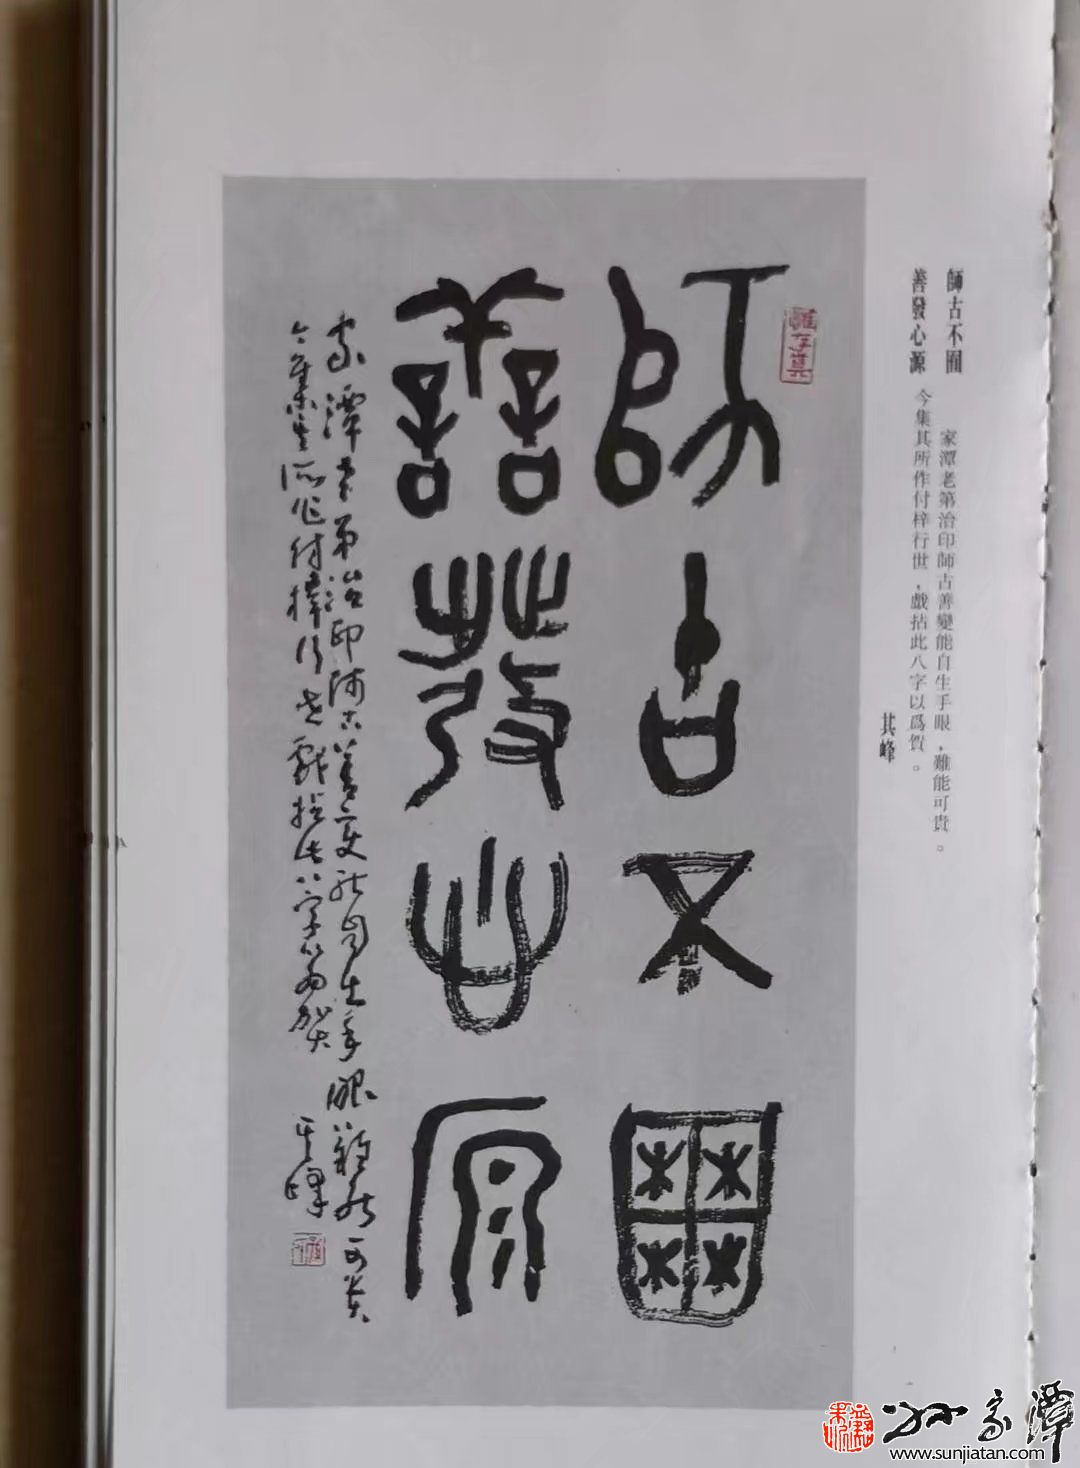 師古不囿
善發心源
家潭老第治印師古善變能自生手眼，難能可貴。
今集其所作付梓行世，戲拈此八字以爲賀。
其峰
師古不囿
善發心源
家潭老弟治印師古善變能自生手眼難能可貴
今集其所作付梓行世戲拈此八字以為賀
其峰
孙家潭
www.sunjiatan.com